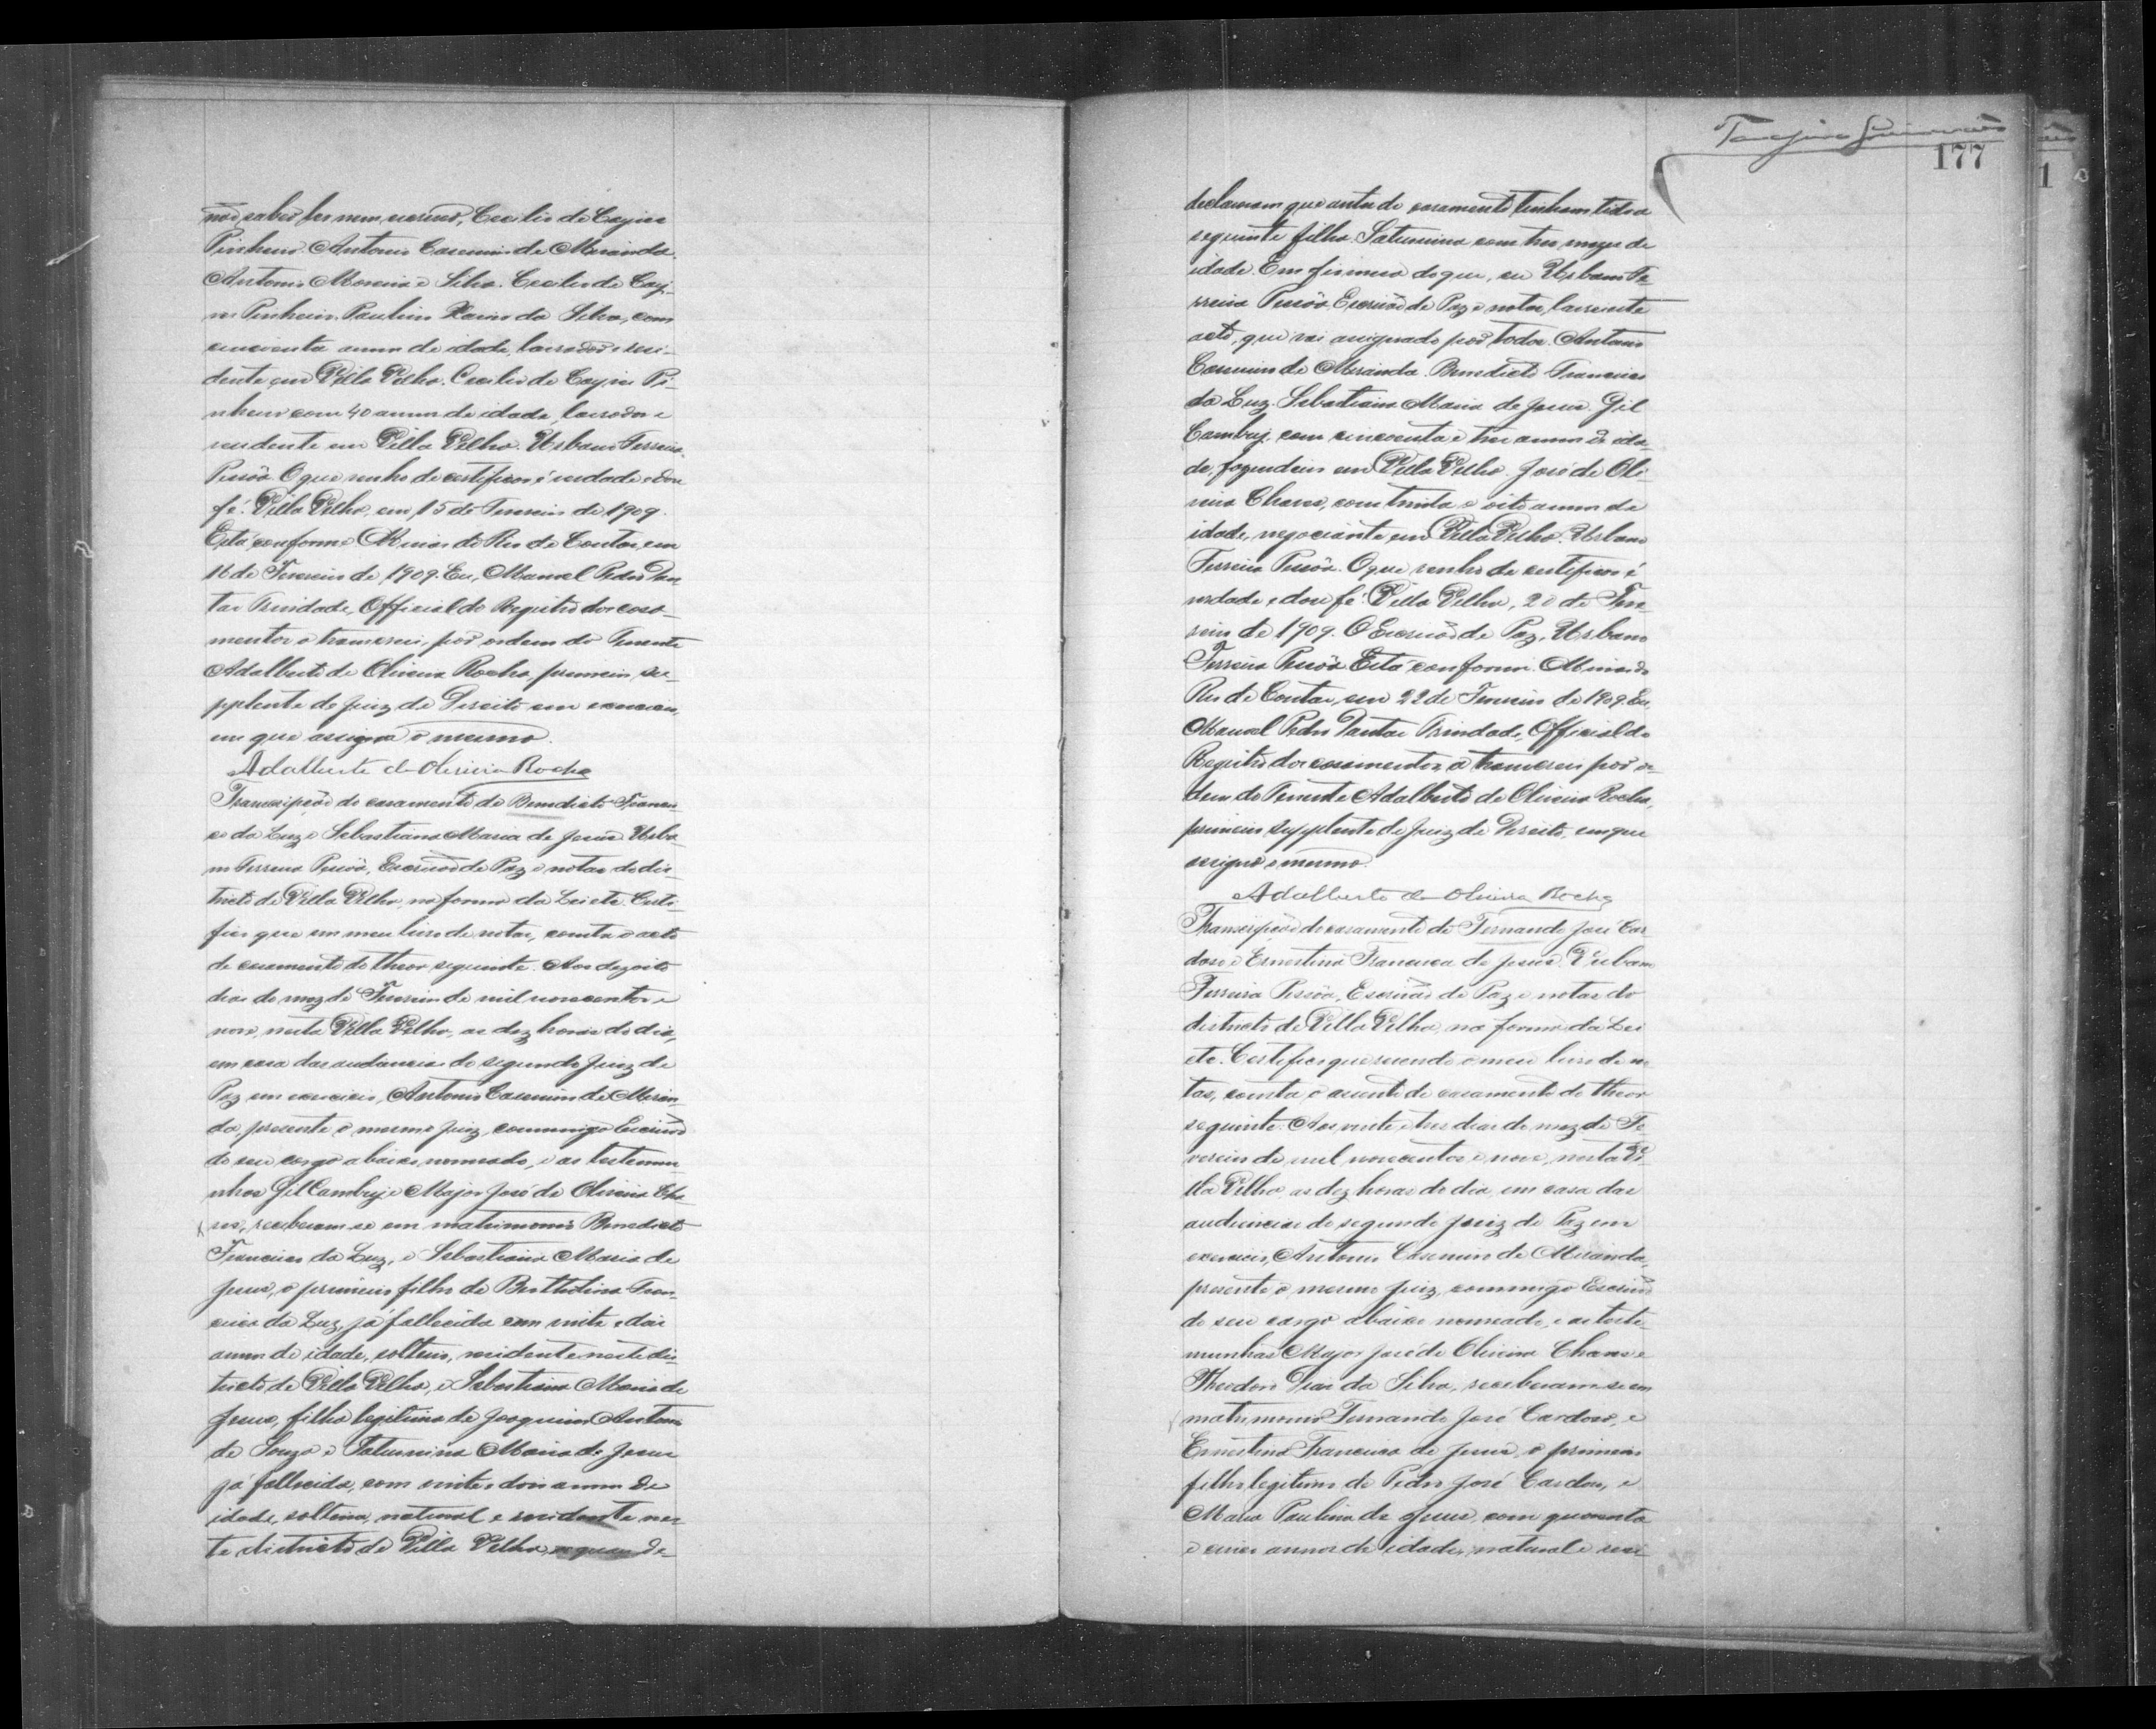 não saber ler nem escrever, Cecilio de Cayres
Pinheiro. Antonio Casemiro de Miranda.
Antonio Moreira e Silva. Cecilio de Cay-
res Pinheiro. Paulino da Silva, com
cincoenta annos de idade, lavrador e resi-
dente em Villa Velha. Cecilio de Cayres Pi-
nheiro com 40 annos de idade, lavrador e
residente em Villa Velha. Urbano Ferreira
Pessôa. O que venho de certificar é verdade e dou
fé. Villa Velha, em 15 de Fevereiro de 1909.
Está conforme. Minas do Rio de Contas, em
16 de Fevereiro de 1909. Eu, Manoel Pedro Dan-
tas Trindade, Official do Registro dos casa-
mentos o transcrevi, por ordem do Tenente
Adalberto de Oliveira Rocha, primeiro su-
pplente do Juiz de Direito em exercicio,
em que assigna o mesmo.
Adalberto de Oliveira Rocha
Transcripção do casamento de Benedicto Francis-
co da Luz e Sebastiana Maria de Jesus. Urba-
no Ferreira Pessôa, Escrivão de Paz e notas do dis-
tricto de Villa Velha, na forma da Lei etc. Certi-
fico que em meu livro de notas, consta o acto
de casamento do theor seguinte. Aos dezoito
dias do mez de Fevereiro de mil novecentos e
nove, nesta Villa Velha, as dez horas do dia,
em casa das audiencias do segundo Juiz de
Paz em exercicio, Antonio Casemiro de Miran-
da, presente o mesmo Juiz, commigo Escrivão
de seu cargo abaixo nomeado, e as testemu-
nhas Gil Cambuy e Major José de Oliveira Cha-
ves, receberam-se em matrimonio Benedicto
Francisco da Luz, e Sebastiana Maria de
Jesus, o primeiro filho de Fran-
cisca da Luz, já fallecida com vinte e dois
annos de idade, solteiro, residente neste dis-
tricto de Villa Velha, e Sebastiana Maria de
Jesus, filha legitima de Joaquim Antonio
de Souza e Saturnina Maria de Jesus
já fallecida, com vinte e dois annos de
idade, solteira, natural e residente nes-
te districto de Villa Velha, de-
177
declararam que antes do casamento tinham tido a
seguinte filha Saturnina com tres mezes de
idade. Em firmeza do que, eu Urbano Fe-
rreira Pessôa, Escrivão de Paz e notas, lavrei este
acto, que vai assignado por todos. Antonio
Casemiro de Miranda. Benedicto Francisco
da Luz. Sebastiana Maria de Jesus. Gil
Cambuy, com cincoenta e tres annos de ida-
de, fazendeiro em Villa Velha. José de Oli-
veira Chaves, com trinta e oito annos de
idade, negociante em Villa Velha. Urbano
Ferreira Pessôa. O que venho de certificar é
verdade e dou fé. Villa Velha, 20 de Feve-
reiro de 1909. O Escrivão de Paz, Urbano
Ferreira Pessôa. Está conforme. Minas do
Rio de Contas, em 22 de Fevereiro de 1909. Eu,
Manoel Pedro Dantas Trindade, Official do
Registro dos casamentos, o transcrevi por or-
dem do Tenente Adalberto de Oliveira Rocha,
primeiro supplente do Juiz de Direito, em que
assigna o mesmo.
Adalberto de Oliveira Rocha
Transcripção do casamento de Fernando José Car-
doso e Ernestina Francisca de Jesus. Urbano
Ferreira Pessôa, Escrivão de Paz e notas do
districto de Villa Velha, na forma da Lei
etc. Certifico que revendo o meu livro de no-
tas, consta o assento do casamento do theor
seguinte. Aos vinte e tres dias do mez de Fe-
vereiro de mil novecentos e nove, nesta Vi-
lla Velha, as dez horas do dia, em casa das
audiencias do segundo Juiz de Paz em
exercicio, Antonio Casemiro de Miranda,
presente o mesmo Juiz, commigo Escrivão
do seu cargo abaixo nomeado, e as teste-
munhas Major José de Oliveira Chaves e
Theodoro Dias da Silva, receberam-se em
matrimonio Fernando José Cardoso, e
Ernestina Francisca de Jesus, o primeiro
filho legitimo de Pedro José Cardoso, e
Maria Paulina de Jesus, com quarenta
e cinco annos de idade, natural e resi-